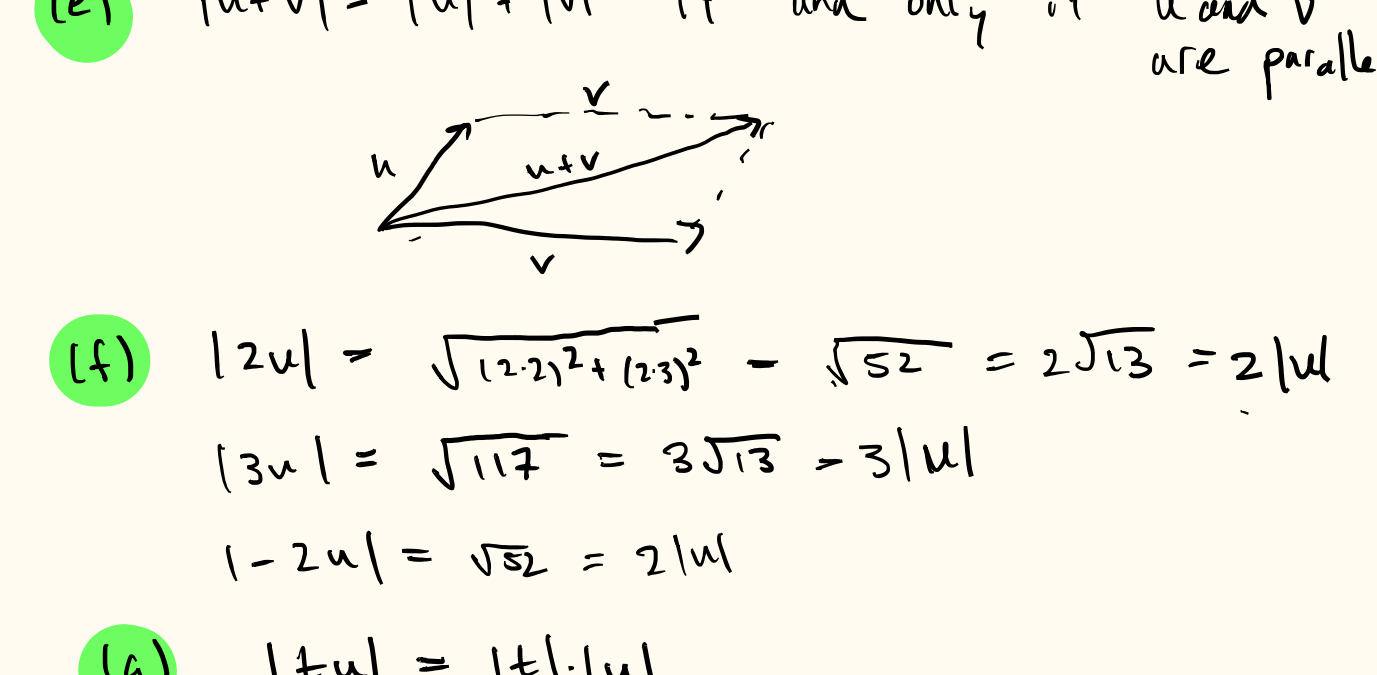 (e) |u+v| = |u| + |v| if and only if u and v
are paralle
v
u
u+v
v
(f) |2u| = √((2·2)² + (2·3)²) = √52 = 2√13 = 2|u|
|3u| = √117 = 3√13 = 3|u|
|-2u| = √52 = 2|u|
(g) |tu| = |t|·|u|